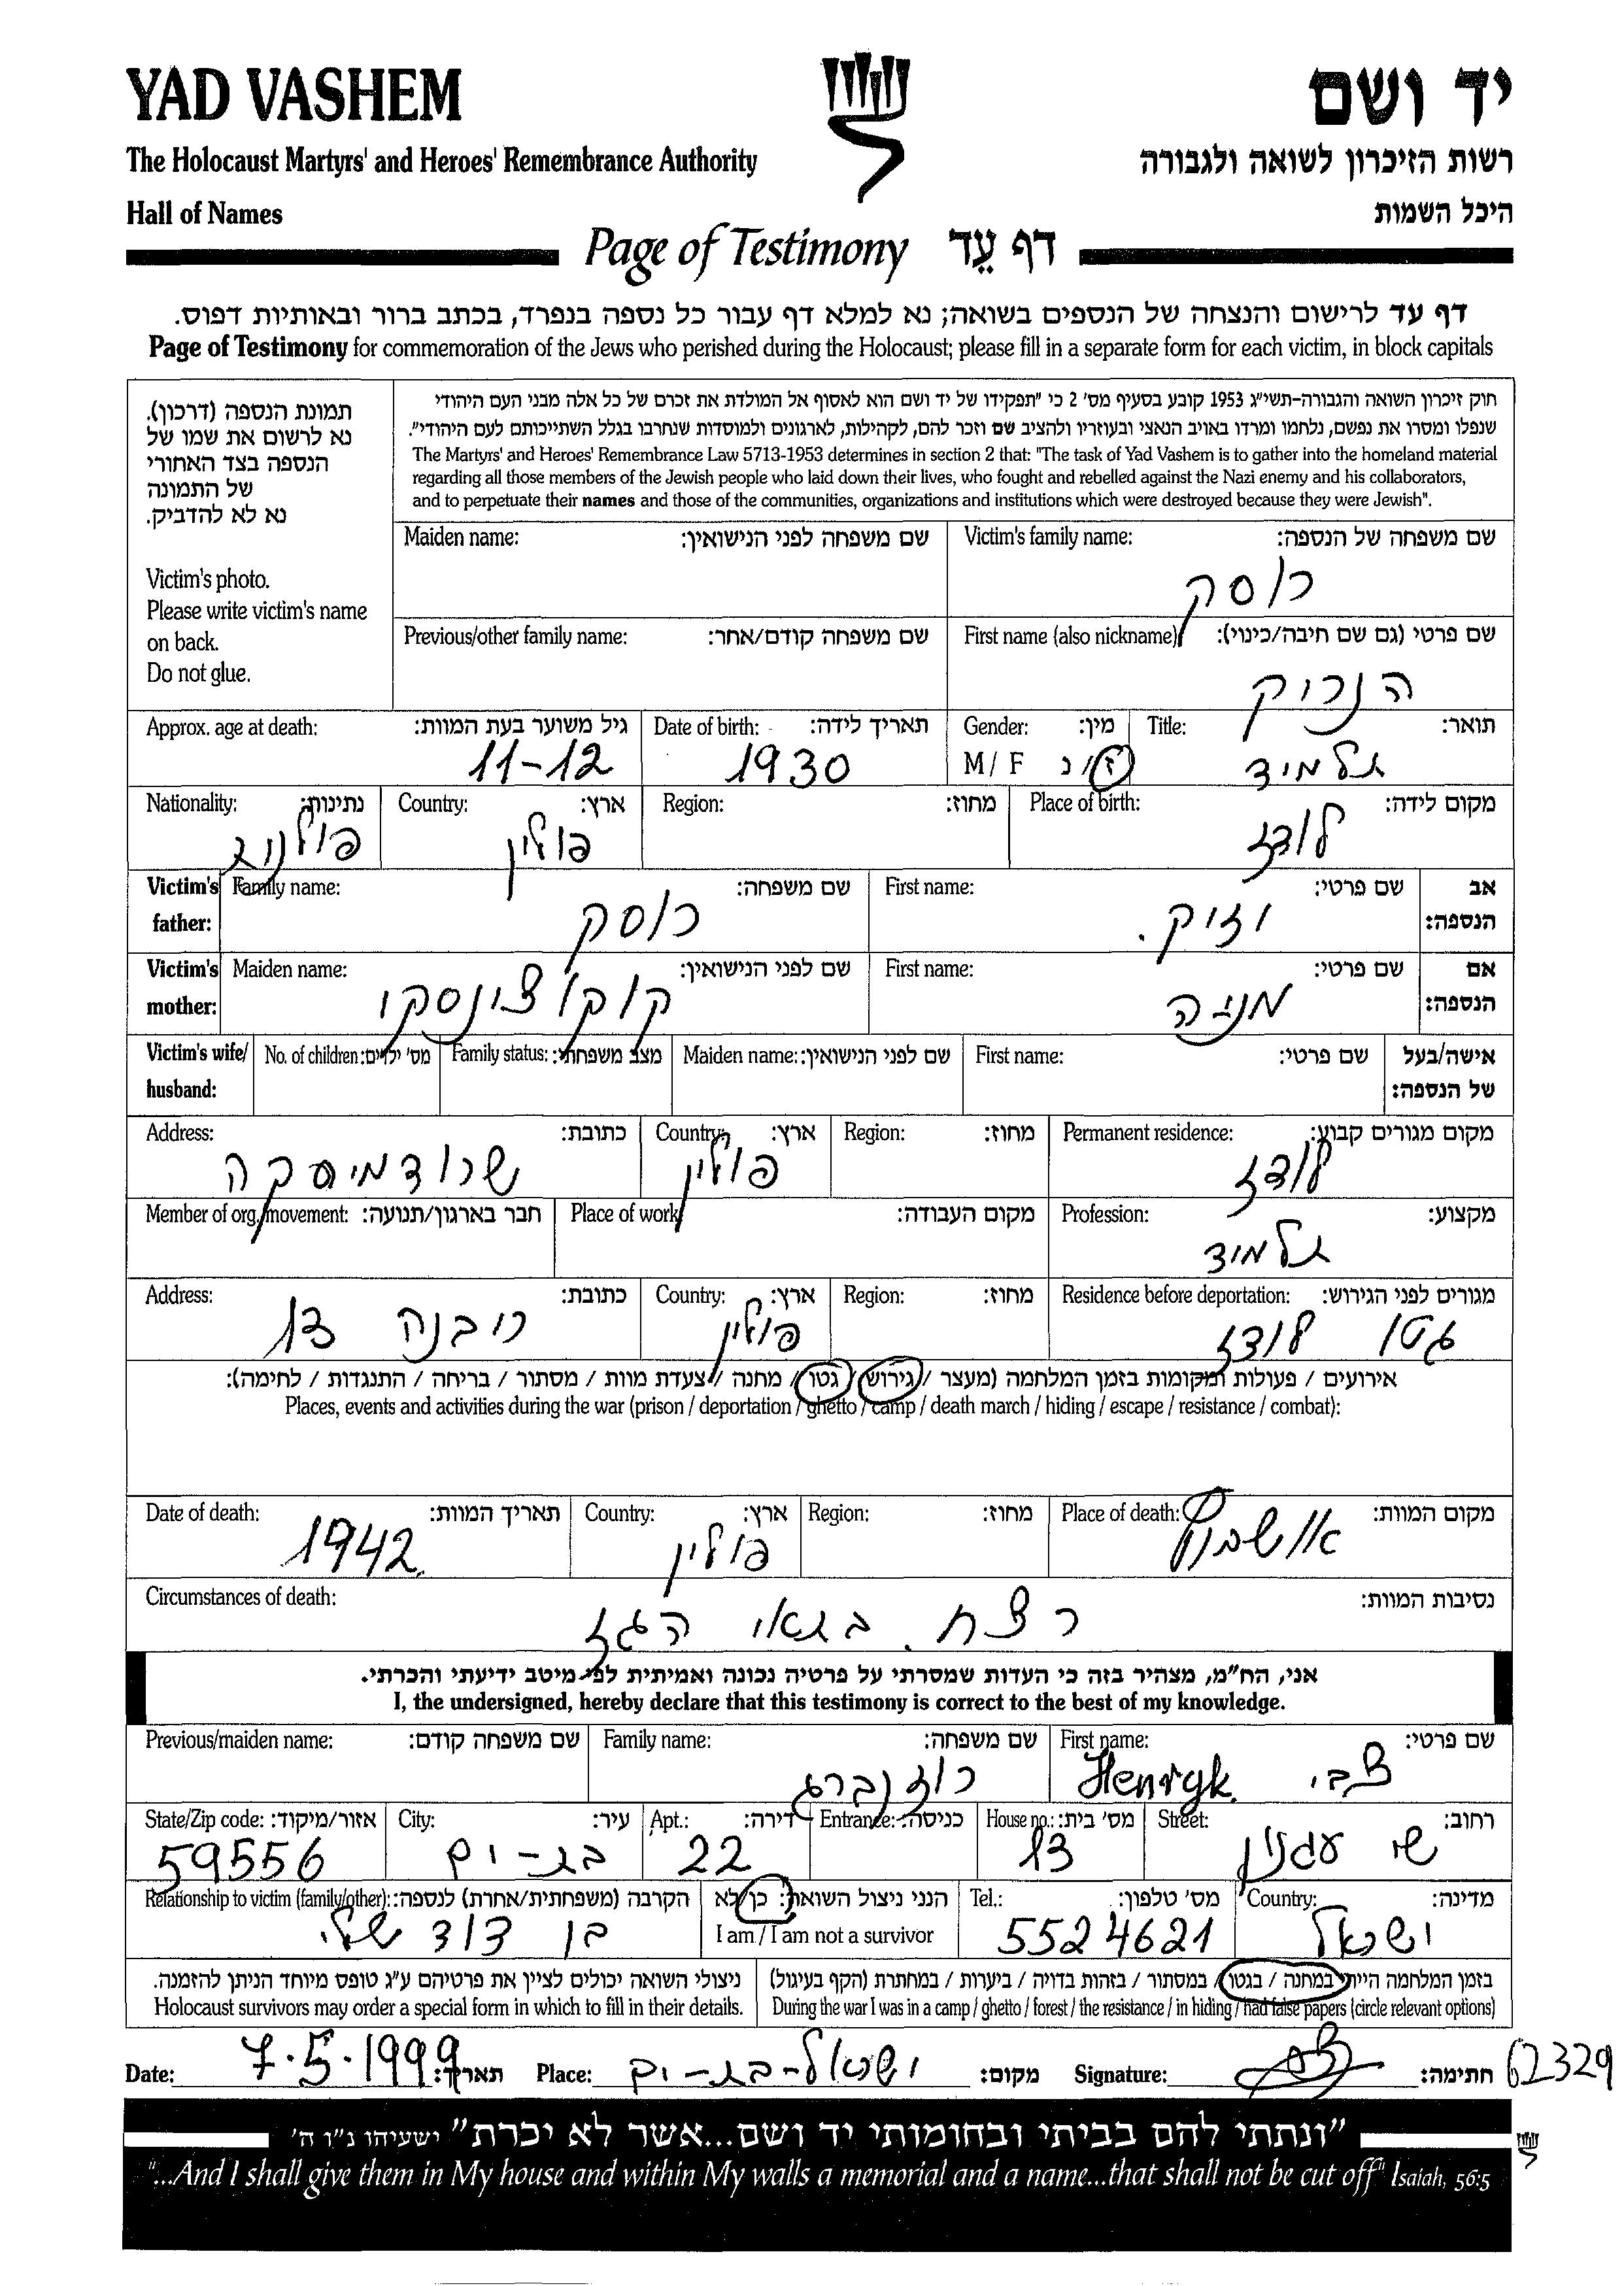 YAD VASHEM יד ושם
The Holocaust Martyrs' and Heroes' Remembrance Authority רשות הזיכרון לשואה ולגבורה
Hall of Names היכל השמות
Page of Testimony דף עֵד
דף עד לרישום והנצחה של הנספים בשואה; נא למלא דף עבור כל נספה בנפרד, בכתב ברור ובאותיות דפוס.
Page of Testimony for commemoration of the Jews who perished during the Holocaust; please fill in a separate form for each victim, in block capitals
תמונת הנספה (דרכון).
נא לרשום את שמו של
הנספה בצד האחורי
של התמונה
נא לא להדביק.
Victim's photo.
Please write victim's name
on back.
Do not glue.
חוק זיכרון השואה והגבורה-תשי״ג 1953 קובע בסעיף מס' 2 כי "תפקידו של יד ושם הוא לאסוף אל המולדת את זכרם של כל אלה מבני העם היהודי
שנפלו ומסרו את נפשם, נלחמו ומרדו באויב הנאצי ובעוזריו ולהציב שם וזכר להם, לקהילות, לארגונים ולמוסדות שנחרבו בגלל השתייכותם לעם היהודי".
The Martyrs' and Heroes' Remembrance Law 5713-1953 determines in section 2 that: "The task of Yad Vashem is to gather into the homeland material
regarding all those members of the Jewish people who laid down their lives, who fought and rebelled against the Nazi enemy and his collaborators,
and to perpetuate their names and those of the communities, organizations and institutions which were destroyed because they were Jewish".
Maiden name: שם משפחה לפני הנישואין: Victim's family name: שם משפחה של הנספה:
רוסק
Previous/other family name: שם משפחה קודם/אחר: First name (also nickname): שם פרטי (גם שם חיבה/כינוי):
הנריק
Approx. age at death: גיל משוער בעת המוות: Date of birth: תאריך לידה: Gender: מין: Title: תואר:
11-12 1930 M/F ז/נ תלמיד
Nationality: נתינות: Country: ארץ: Region: מחוז: Place of birth: מקום לידה:
פולנית פולין לודז
Victim's father: Family name: שם משפחה: First name: שם פרטי: אב הנספה:
רוסק וזיק.
Victim's mother: Maiden name: שם לפני הנישואין: First name: שם פרטי: אם הנספה:
קוקוצינסקי מניה
Victim's wife/ husband: No. of children: מס' ילדים: Family status: מצב משפחתי: Maiden name: שם לפני הנישואין: First name: שם פרטי: אישה/בעל של הנספה:
Address: כתובת: Country: ארץ: Region: מחוז: Permanent residence: מקום מגורים קבוע:
שרודמיסקה פולין לודז
Member of org./movement: חבר בארגון/תנועה: Place of work: מקום העבודה: Profession: מקצוע:
תלמיד
Address: כתובת: Country: ארץ: Region: מחוז: Residence before deportation: מגורים לפני הגירוש:
ריבנה 13 פולין גטו לודז
אירועים / פעולות ומקומות בזמן המלחמה (מעצר / גירוש / גטו / מחנה / צעדת מוות / מסתור / בריחה / התנגדות / לחימה):
Places, events and activities during the war (prison / deportation / ghetto / camp / death march / hiding / escape / resistance / combat):
Date of death: תאריך המוות: Country: ארץ: Region: מחוז: Place of death: מקום המוות:
1942 פולין אושבוץ
Circumstances of death: נסיבות המוות:
רצח. בתאי הגז
אני, הח״מ, מצהיר בזה כי העדות שמסרתי על פרטיה נכונה ואמיתית לפי מיטב ידיעתי והכרתי.
I, the undersigned, hereby declare that this testimony is correct to the best of my knowledge.
Previous/maiden name: שם משפחה קודם: Family name: שם משפחה: First name: שם פרטי:
רוזנברג Henryk צבי
State/Zip code: אזור/מיקוד: City: עיר: Apt.: דירה: Entrance: כניסה: House no.: מס' בית: Street: רחוב:
59556 בת-ים 22 13 שי עגנון
Relationship to victim (family/other): הקרבה (משפחתית/אחרת) לנספה: הנני ניצול השואה: כן/לא Tel.: מס' טלפון: Country: מדינה:
בן דוד שלי I am / I am not a survivor 5524621 ישראל
ניצולי השואה יכולים לציין את פרטיהם ע״ג טופס מיוחד הניתן להזמנה. בזמן המלחמה הייתי במחנה / בגטו / במסתור / בזהות בדויה / ביערות / במחתרת (הקף בעיגול)
Holocaust survivors may order a special form in which to fill in their details. During the war I was in a camp / ghetto / forest / the resistance / in hiding / had false papers (circle relevant options)
Date: 7.5.1999 תאריך: Place: ישראל-בת-ים מקום: Signature: חתימה: 62329
"ונתתי להם בביתי ובחומותי יד ושם...אשר לא יכרת" ישעיהו נ״ו ה'
"...And I shall give them in My house and within My walls a memorial and a name...that shall not be cut off" Isaiah, 56:5